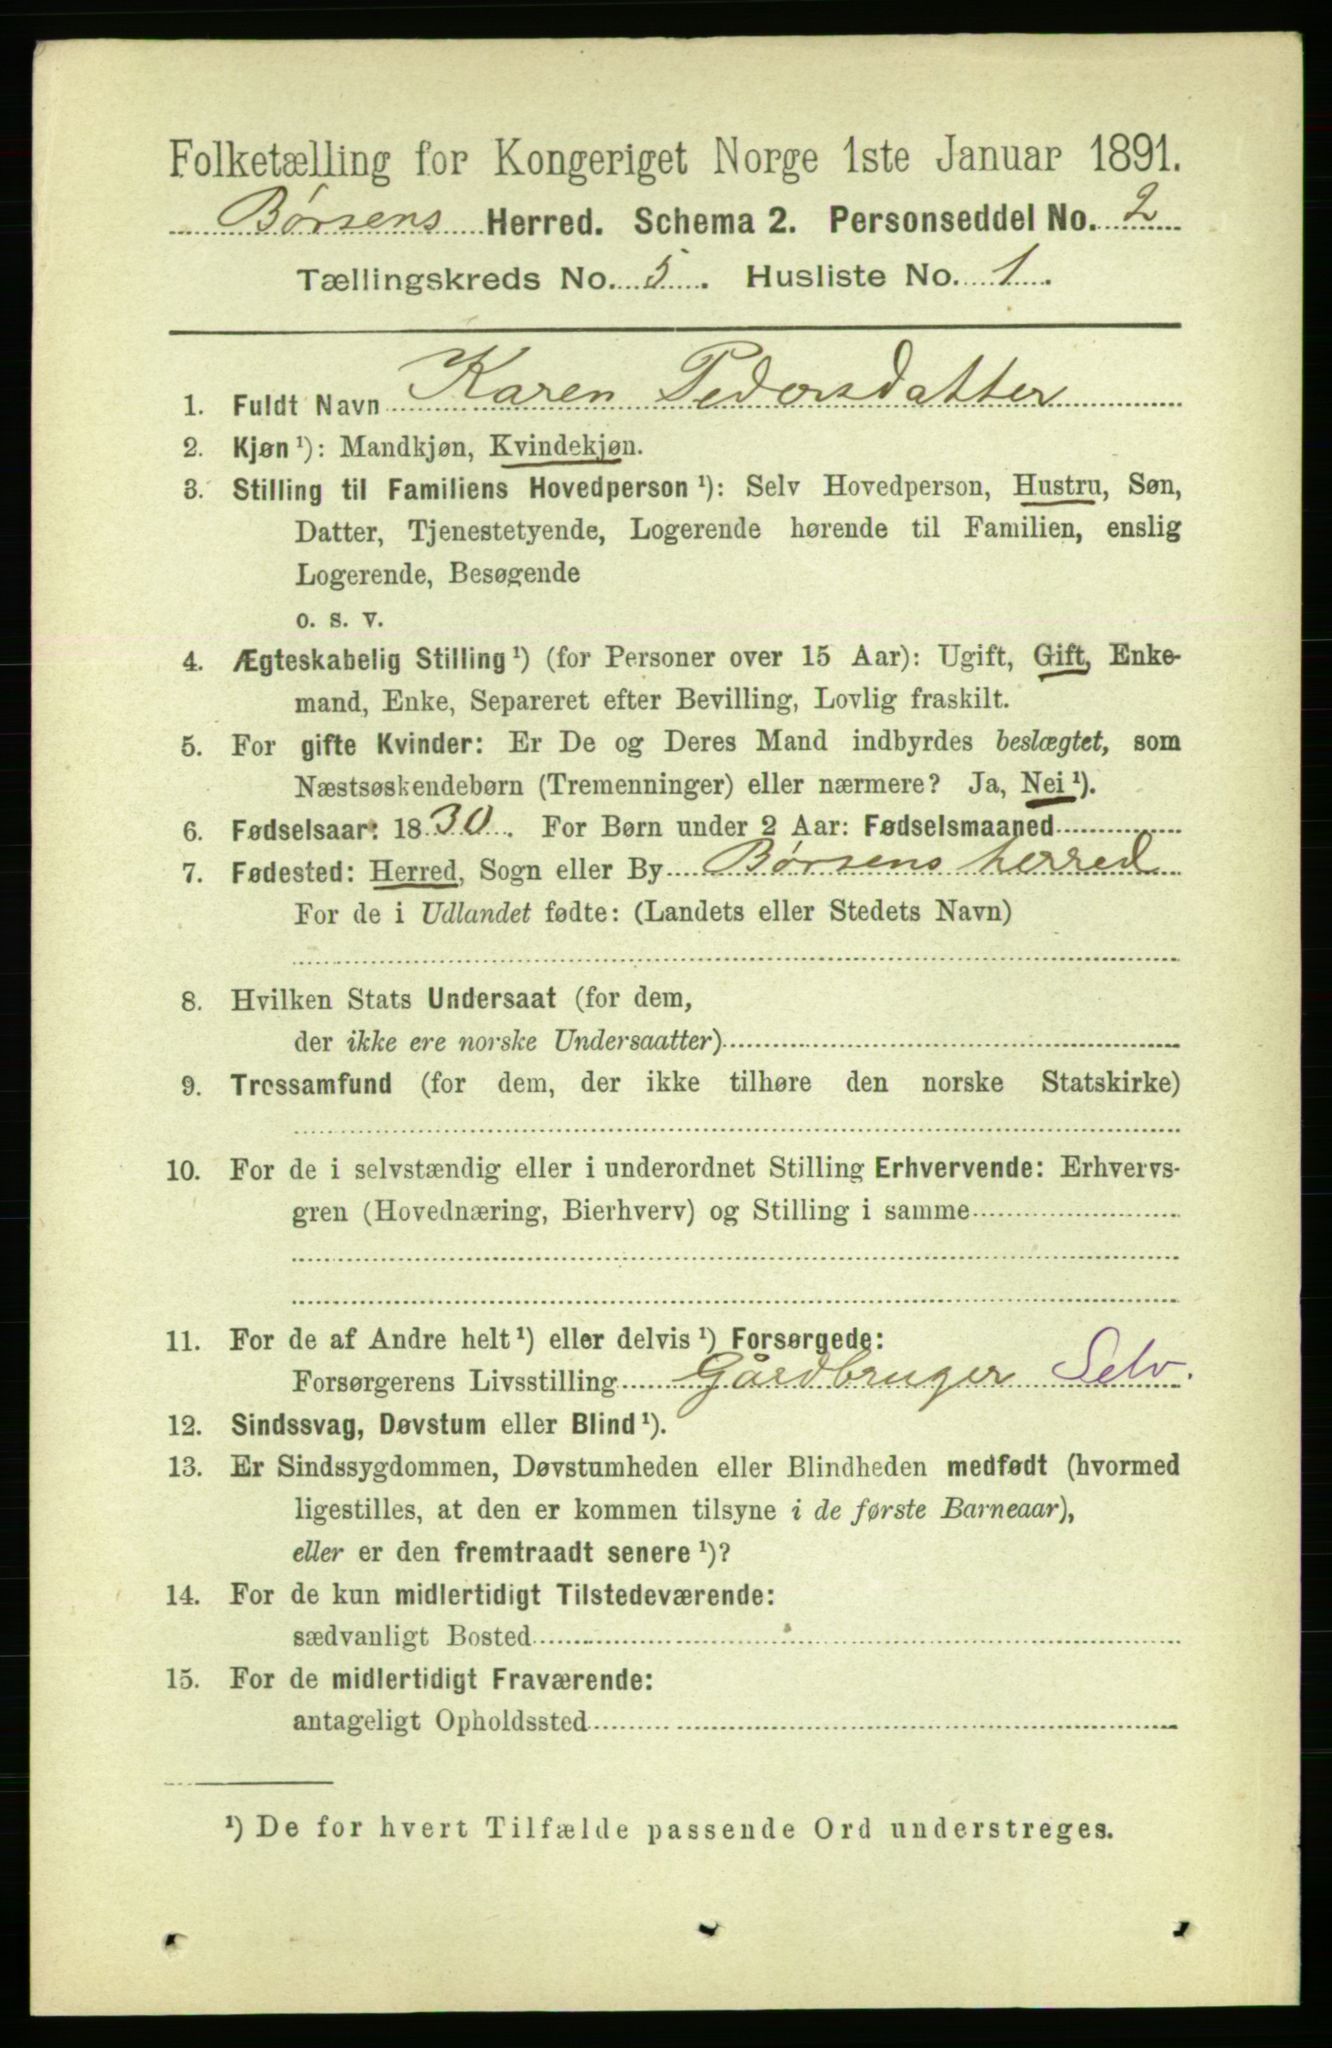 Folketælling for Kongeriget Norge 1ste Januar 1891.
Børsens Herred. Schema 2. Personseddel No. 2
Tællingskreds No. 5. Husliste No. 1.
1. Fuldt Navn Karen Pedersdatter
2. Kjøn¹): Mandkjøn, Kvindekjøn.
3. Stilling til Familiens Hovedperson¹): Selv Hovedperson, Hustru, Søn,
Datter, Tjenestetyende, Logerende hørende til Familien, enslig
Logerende, Besøgende
o. s. v.
4. Ægteskabelig Stilling¹) (for Personer over 15 Aar): Ugift, Gift, Enke-
mand, Enke, Separeret efter Bevilling, Lovlig fraskilt.
5. For gifte Kvinder: Er De og Deres Mand indbyrdes beslægtet, som
Næstsøskendebørn (Tremenninger) eller nærmere? Ja, Nei¹).
6. Fødselsaar: 1830. For Børn under 2 Aar: Fødselsmaaned
7. Fødested: Herred, Sogn eller By Børsens herred
For de i Udlandet fødte: (Landets eller Stedets Navn)
8. Hvilken Stats Undersaat (for dem,
der ikke ere norske Undersaatter)
9. Trossamfund (for dem, der ikke tilhøre den norske Statskirke)
10. For de i selvstændig eller i underordnet Stilling Erhvervende: Erhvervs-
gren (Hovednæring, Bierhverv) og Stilling i samme
11. For de af Andre helt¹) eller delvis¹) Forsørgede:
Forsørgerens Livsstilling Gårdbruger Selv.
12. Sindssvag, Døvstum eller Blind¹).
13. Er Sindssygdommen, Døvstumheden eller Blindheden medfødt (hvormed
ligestilles, at den er kommen tilsyne i de første Barneaar),
eller er den fremtraadt senere¹)?
14. For de kun midlertidigt Tilstedeværende:
sædvanligt Bosted
15. For de midlertidigt Fraværende:
antageligt Opholdssted
¹) De for hvert Tilfælde passende Ord understreges.